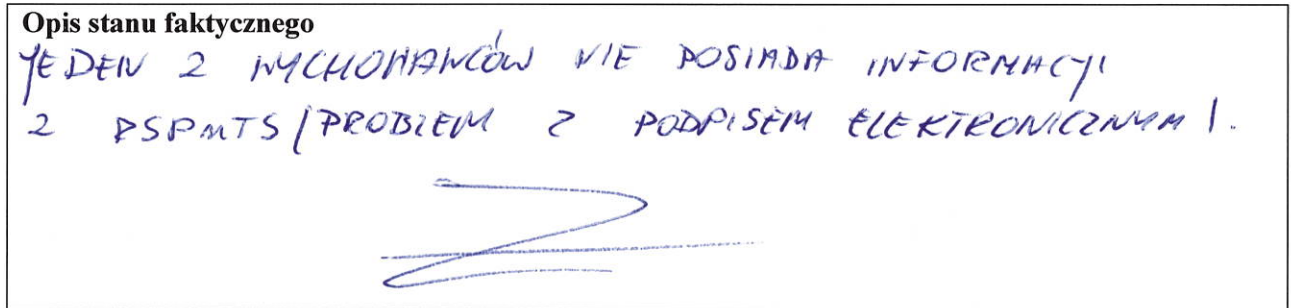 Opis stanu faktycznego
JEDEN Z WYCHOWAWCÓW NIE POSIADA INFORMACJI
Z RSPNTS / PROBLEM Z PODPISEM ELEKTRONICZNYM /.